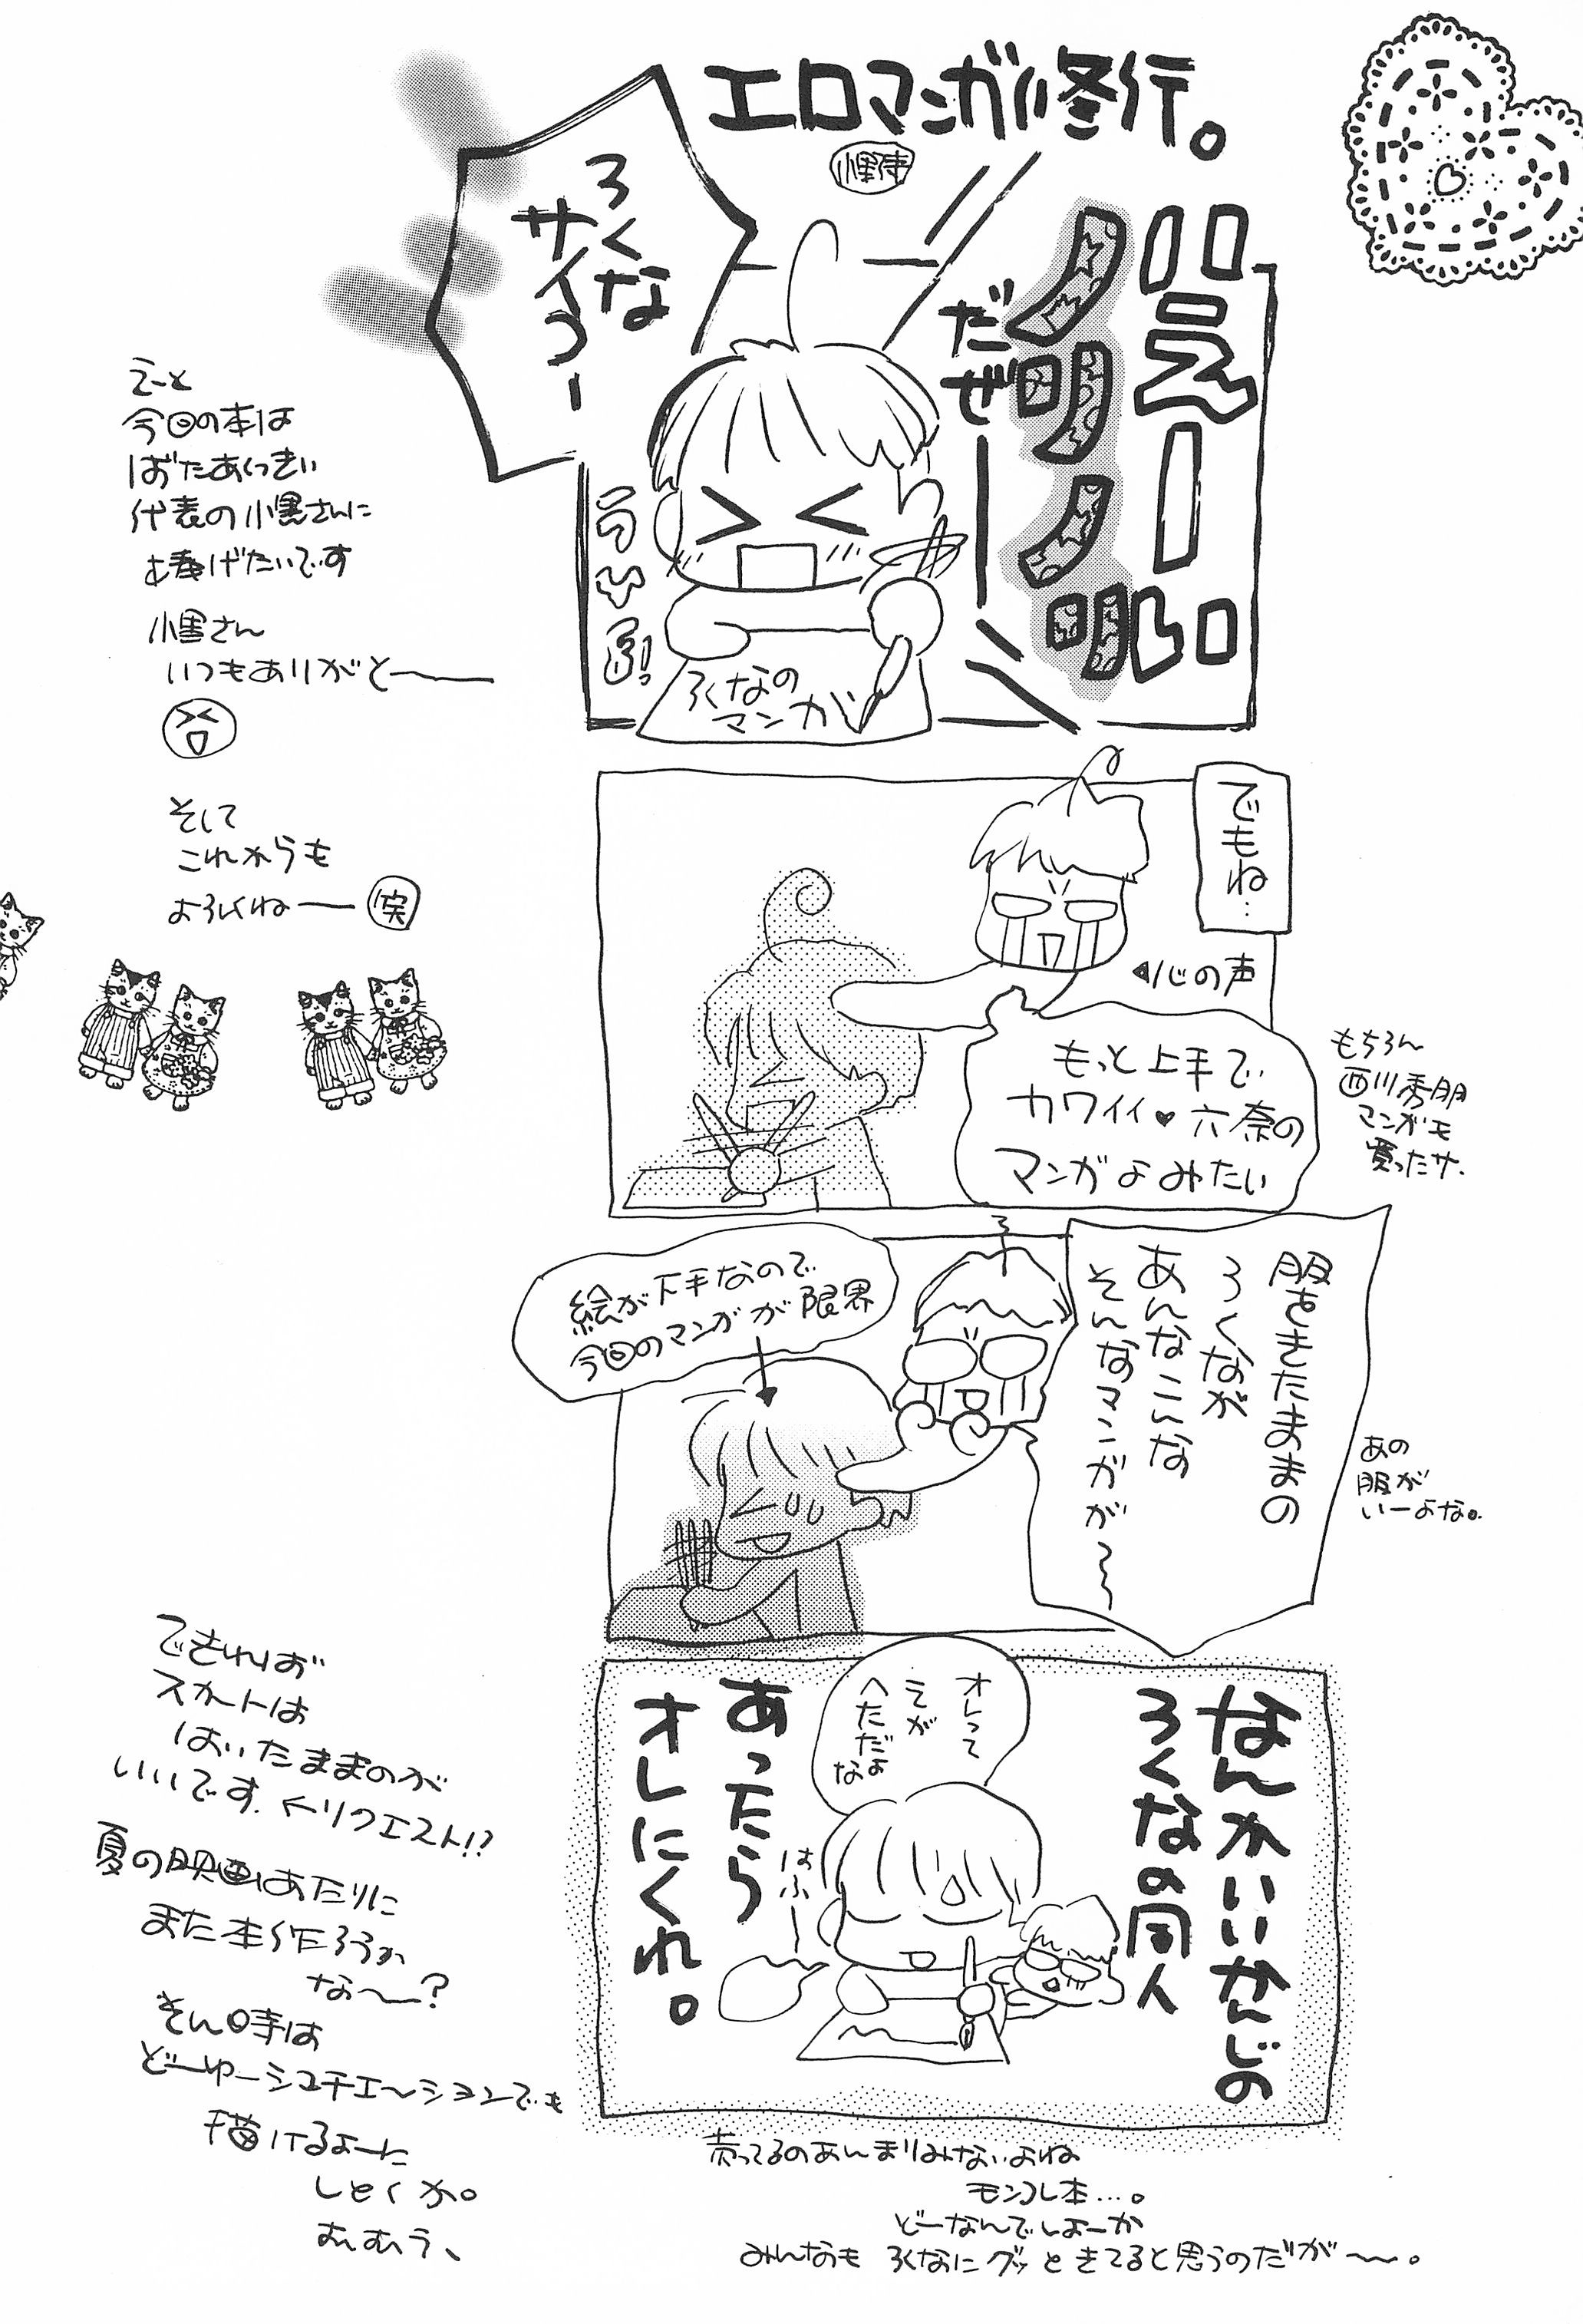 エロマンガ修行。
ろくな
サイコー
だぜ
ろくなの
マンガ
でもね…
心の声
もっと上手で
カワイイ♥六奈の
マンガよみたい
もちろん
西川秀明
マンガモ
買ったサ.
服をきたままの
ろくなが
あんなこんな
そんなマンガが〜〜
絵が下手なので
今回のマンガが限界
あの
服が
いーよな。
なんかいいかんじの
ろくなの同人
あったら
オレにくれ。
オレって
えが
へただよ
な
はふー
売ってるのあんまりみないよね
モンコレ本…。
どーなんでしょーか
みんなも ろくなにグッときてると思うのだが〜。
えーと
今回の本は
ばたあくっきい
代表の小黒さんに
捧げたいです
小黒さん
いつもありがと〜
そして
これからも
よろしくね― 笑
できれば
スカートは
はいたままのが
いいです. ←リクエスト!?
夏の映画あたりに
また本作ろうか
な〜?
そん時は
どーゆーシュチエ〜ションでも
描けるよーに
しとくか。
むむう、